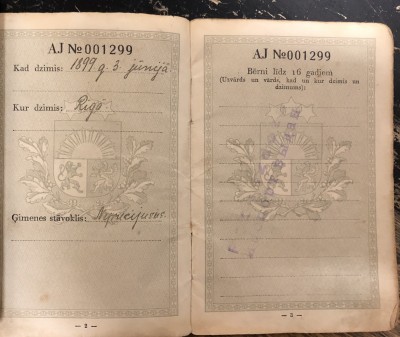 AJ № 001299
Kad dzimis: 1899 g. 3. jūnijā
Kur dzimis: Rīgā
Ģimenes stāvoklis:
— 2 —
AJ № 001299
Bērni līdz 16 gadiem
(Uzvārds un vārds, kad un kur dzimis un
dzimums):
— 3 —